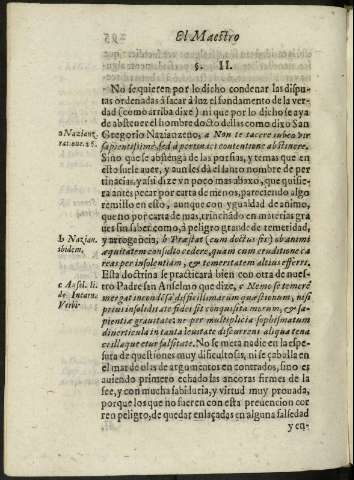 El Maestro
§. II.
No se quieren por lo dicho condenar las dispu-
tas ordenadas à sacar à loz el fundamento de la ver-
dad (como arriba dixe) ni que por lo dicho se aya
de abstener el hombre docto dellas como dixo San
Gregorio Nazianzeno, a Non te tacere iubeo vir
sapientissime, sed à pertinaci contentione abstinere.
Sino que se abstenga de las porfias, y temas que en
esto suele auer, y aun les dà el santo nombre de per
tinacias, y assi dize vn poco mas abaxo, que quisie-
ra antes pecar por carta de menos, pareciendo algo
remisso en esto, aunque con ygualdad de animo,
que no por carta de mas, trinchãdo en materias gra
ues sin saber como, à peligro grande de temeridad,
y arrogancia, b Præstat (cum doctus sis) ob animi
æquitatem consulto cedere, quàm cum eruditione ca
reas per insolentiam, & temeritatem altius efferre.
Esta doctrina se practicarà bien con otra de nues-
tro Padre san Anselmo que dize, c Nemo se temerè
mergat in condẽsa difficillimarum quæstionum, nisi
prius in soliditate fidei sit conquisita morum, & sa-
pientiæ grauitate: ne per multiplicia sophismatum
diuerticula in tanta leuitate discurrens aliqua tena
ci illaquetur falsitate. No se meta nadie en la espe-
sura de questiones muy dificultosas, ni se çabulla en
el mar de olas de argumentos encontrados, sino es
auiendo primero echado las ancoras firmes de la
fee, y con mucha sabiduria, y virtud muy prouada,
porque los que no fueren con esta preuencion cor
ren peligro, de quedar enlaçadas en alguna falsedad
y en-
a Nazianz.
b Nazian.
ibidem.
c Ansel. li.
de Incarn.
Verbi